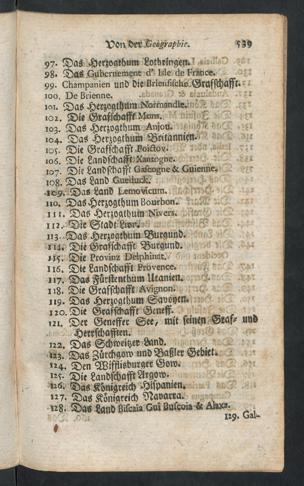 Von der Geographie. 539
97. Das Herzogthum Lothringen.
98. Das Gubernement d' Isle de France.
99. Champanien und die Briensische Grafschafft.
100. De Brienne.
101. Das Herzogthum Normandie.
102. Die Grafschafft Mans.
103. Das Herzogthum Anjou.
104. Das Herzogthum Britannien.
105. Die Grafschafft Poictov.
106. Die Landschafft Xantogne.
107. Die Landschafft Gascogne & Guienne.
108. Das Land
109. Das Land Lemovicum.
110. Das Herzogthum Bourbon.
111. Das Herzogthum Nivers.
112. Die Stadt
113. Das Herzogthum Burgund.
114. Die Grafschafft Burgund.
115. Die Provinz Delphinat.
116. Die Landschafft Provence.
117. Das Fürstenthum Uranien.
118. Die Grafschafft Avignon.
119. Das Herzogthum Savoyen.
120. Die Grafschafft Geneff.
121. Der Geneffer See, mit seinen Graf- und
Herrschafften.
122. Das Schweizer Land.
123. Das Zürchgow und Baßler Gebiet.
124. Den Wifflisburger Gow.
125. Die Landschafft Argow.
126. Das Königreich Hispanien.
127. Das Königreich Navarra.
128. Das Land Biscaia Gui Buscoia &
129. Gal-